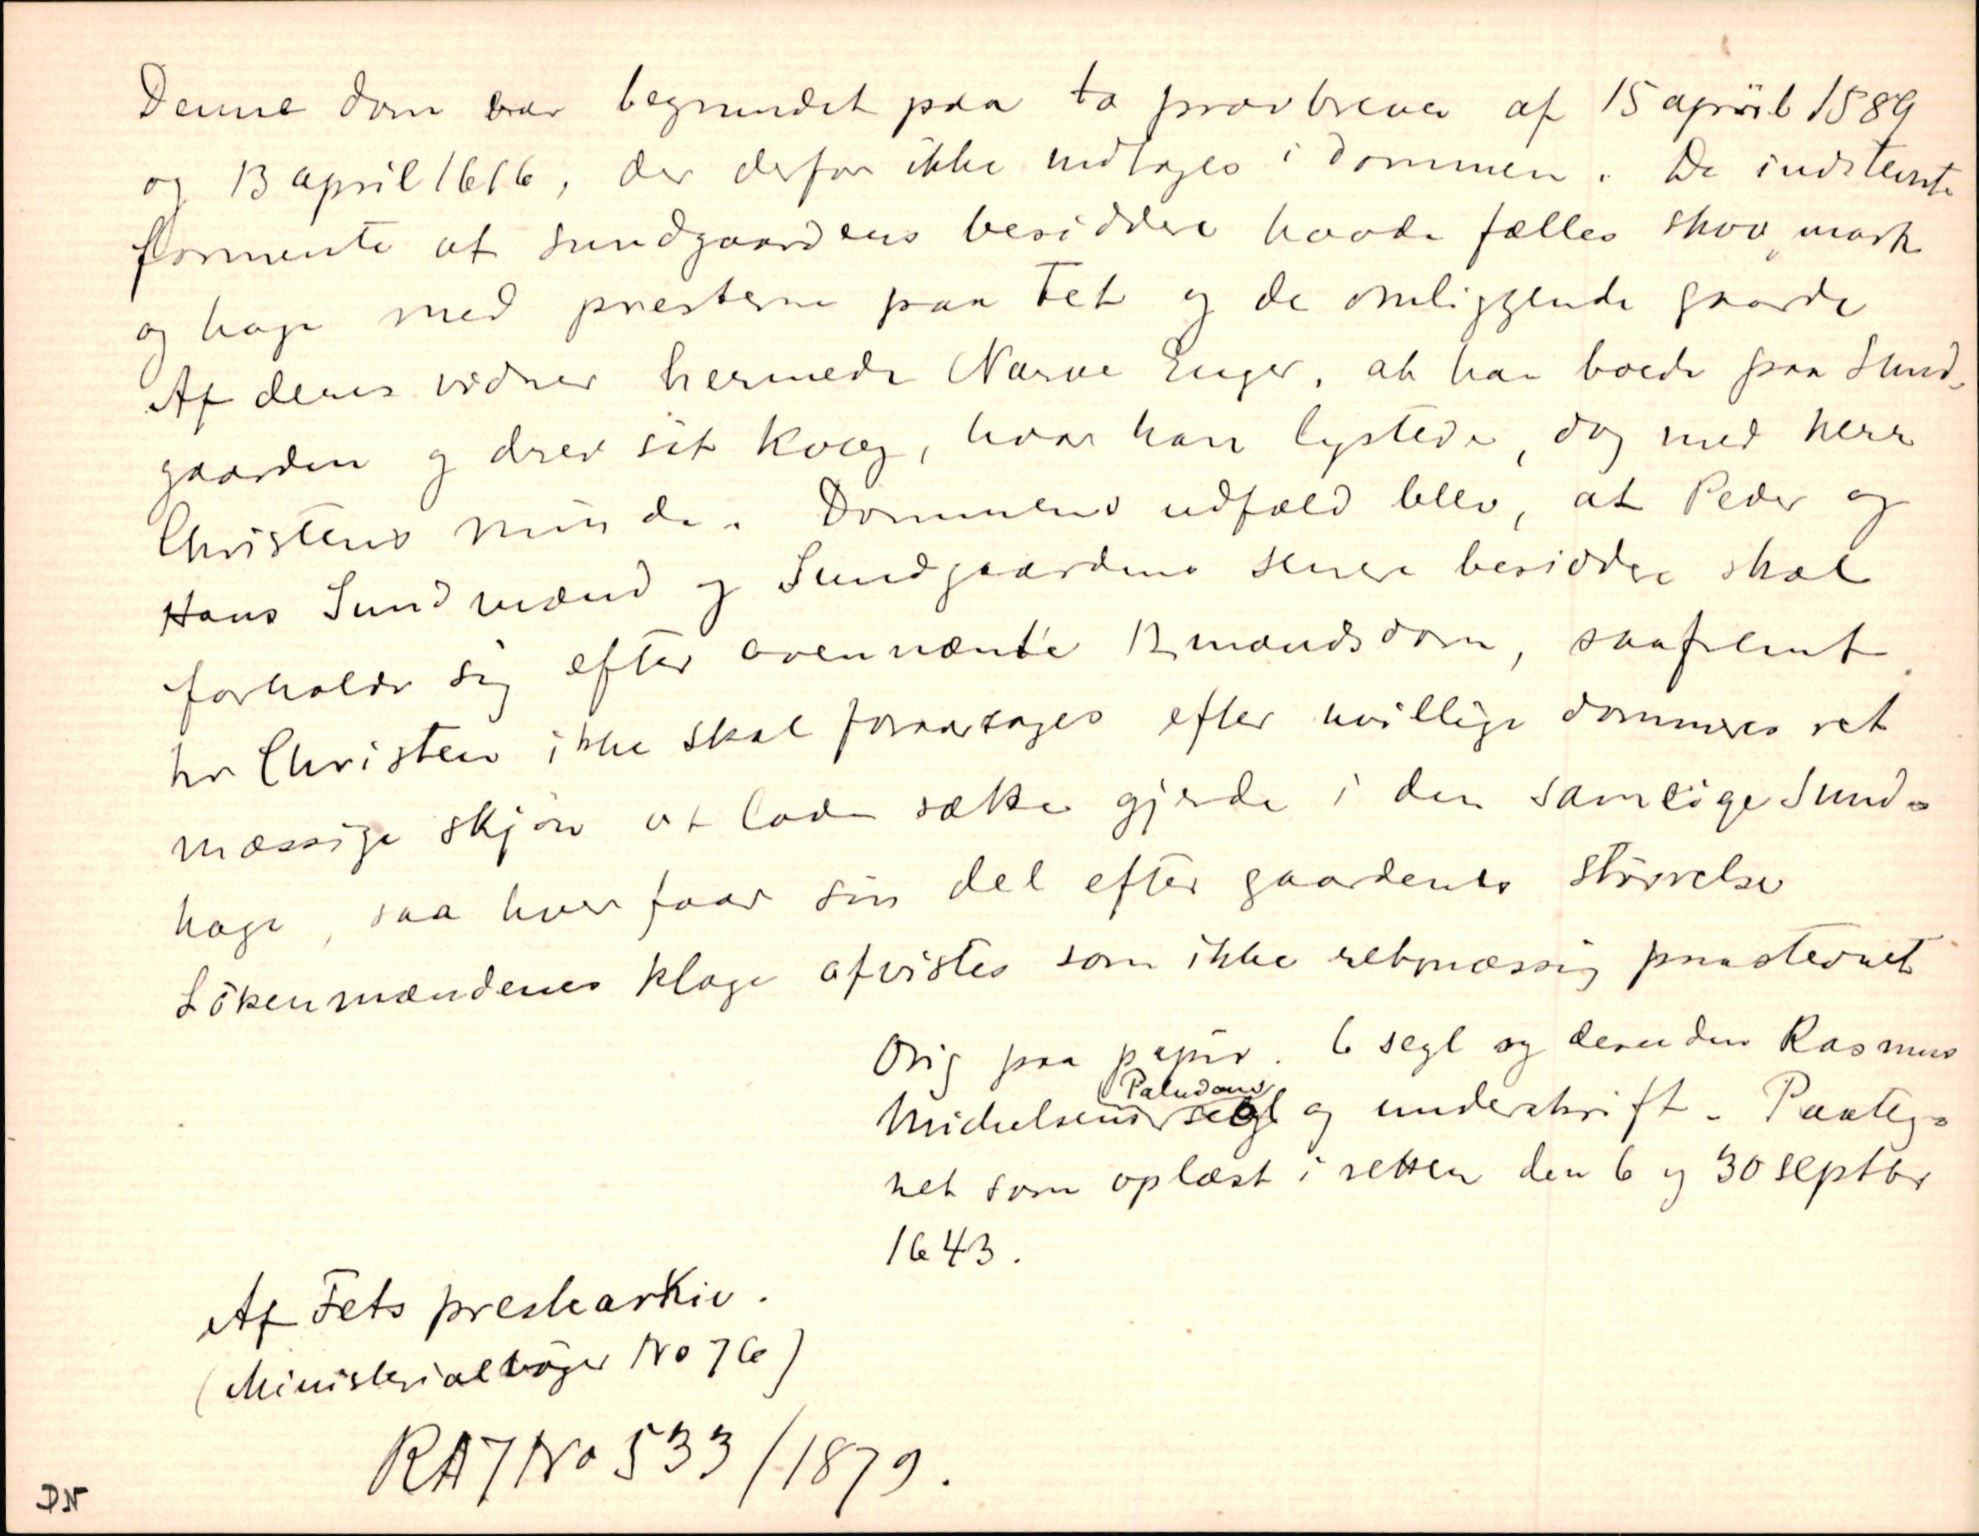 Denne dom var begrundet paa to provbreve af 15 april 1589
og 13 april 1616, der derfor ikke indtages i dommen. De indstevnte
formente at sundgaardens besiddere havde fælles skov, mark
og hage med presterne paa Fet og de omliggende gaarde
Af deres vidner hermede Narve Enger, at han boede paa Sund-
gaarden og drev sit kvæg, hvor han lystede, dog med herr
Christens minde. Dommens udfald blev, at Peder og
Hans Sundmænd og Sundgaardens senere besiddere skal
forholde sig efter ovennænte 12 mandsdom, saafremt
hr Christen ikke skal foraarsages efter uvillige dommeres ret
mæssige skjön at lade sætte gjerde i den samlige Sund-
hage, saa hver faar sin del efter gaardenes störrelse
Lökenmændenes klage afvistes som ikke retmæssig paastevnet
Orig paa papir. 6 segl og desuden Rasmus
Michelsens Paludans segl og underskrift. Paateg-
net som oplæst i retten den 6 og 30 septbr
1643.
Af Fets prestearkiv.
(Ministerialböger No 76)
RA 7 No 533/1879.
DN